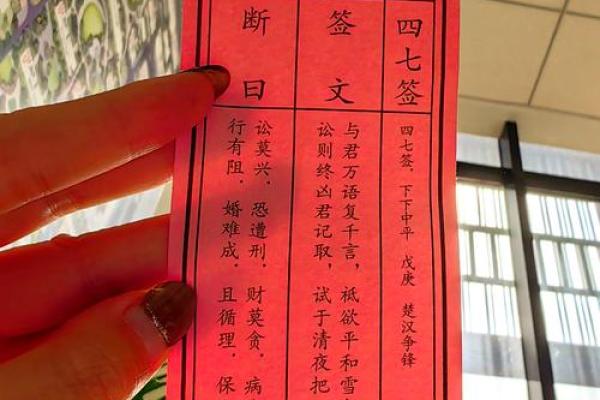 四七签
四七签，下下中平 戊庚 楚汉争锋
签文
与君万语复千言，祗欲平和雪
讼则终凶君记取，试于清夜把
断曰
讼莫兴，恐遭刑，财莫贪，病
行有阻，婚难成，且循理，保